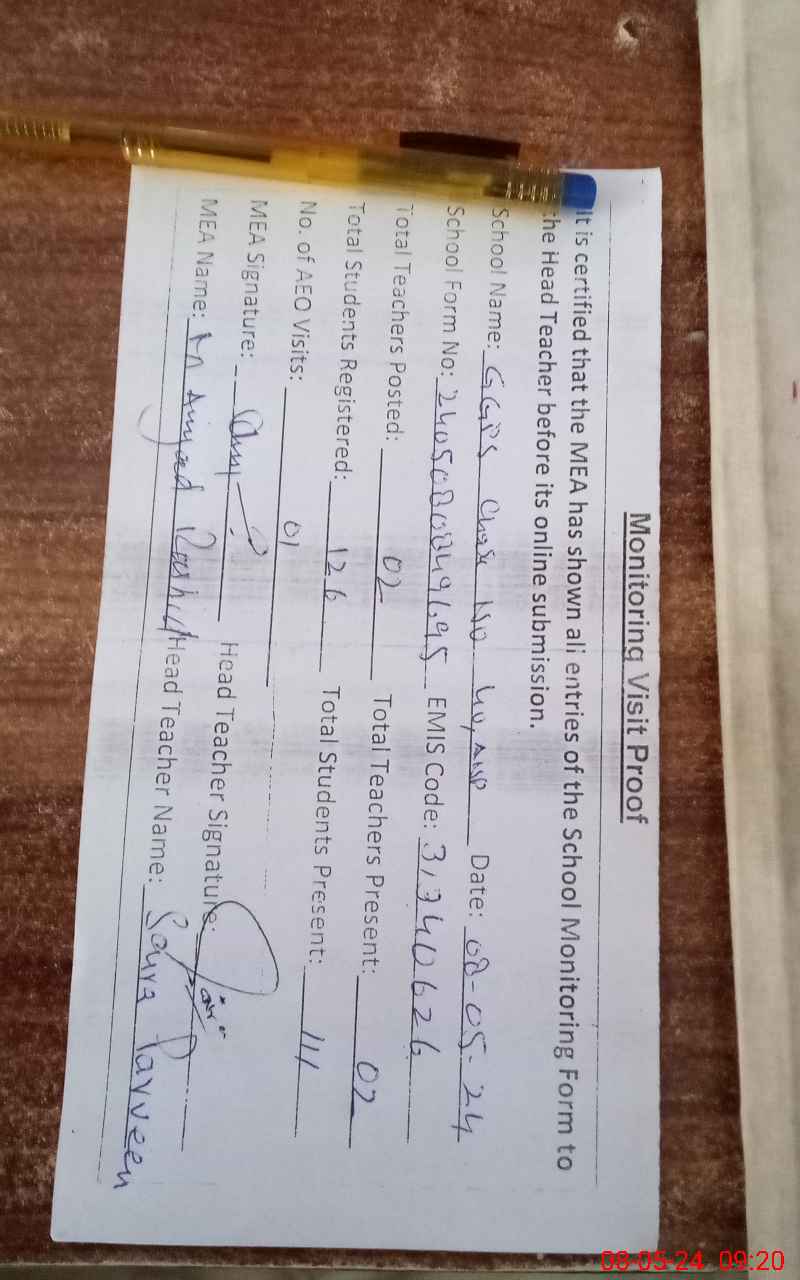 Monitoring Visit Proof
It is certified that the MEA has shown all entries of the School Monitoring Form to
the Head Teacher before its online submission.
School Name: GGPS Chak No 40, Date: 08-05-24
School Form No: 2405080849695 EMIS Code: 31340626
Total Teachers Posted: 02 Total Teachers Present: 02
Total Students Registered: 126 Total Students Present: 111
No. of AEO Visits: 01
MEA Signature: Head Teacher Signature:
MEA Name: M Amjad Rashid Head Teacher Name: Saira Parveen
08-05-24 09:20